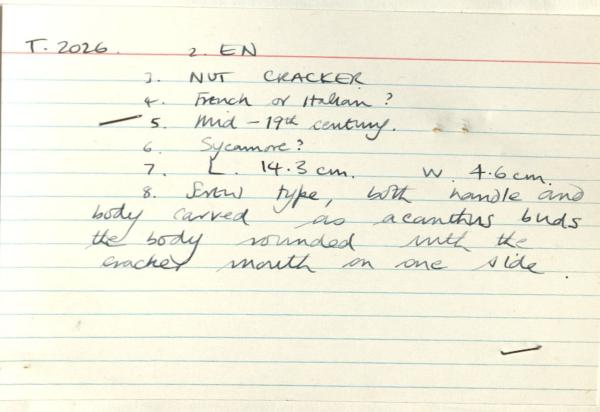 T. 2026. 2. EN
3. NUT CRACKER
4. French or Italian?
5. Mid - 19th century.
6. Sycamore?
7. L. 14.3 cm. W. 4.6 cm.
8. Screw type, both handle and
body carved as acanthus buds
the body rounded with the
cracker mouth on one side.